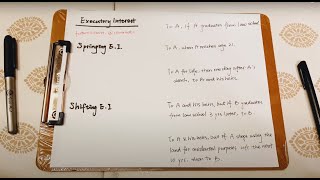 Executory Interest
To A, if A graduates from law school
Springing E.I.
To A, when A attains age 21.
To A for life, then one day after A's
death, to B and his heirs.
Shifting E.I
To A and his heirs, but if B graduates
from law school 5 yrs later, to B.
To A & his heirs, but if A stops using the
land for residential purposes w/in the next
10 yrs, then to B.